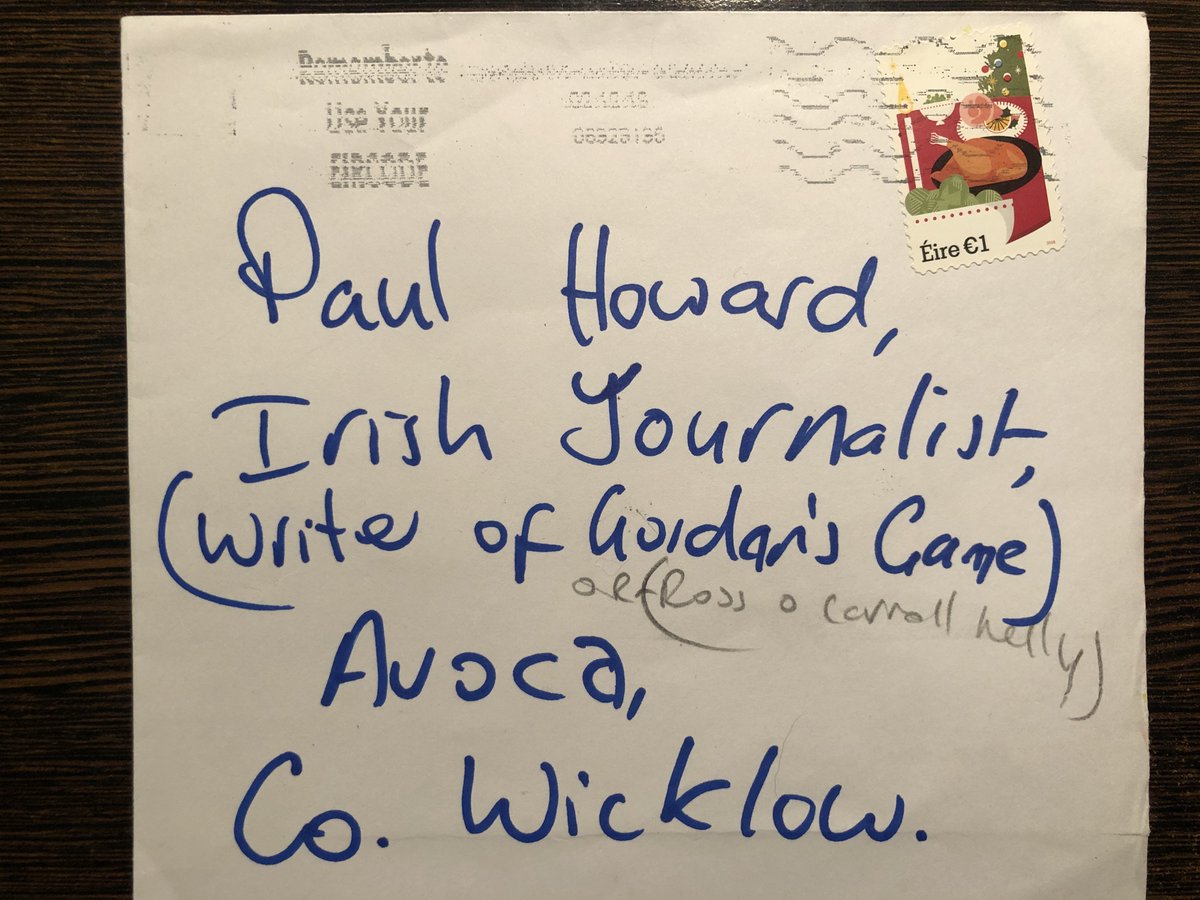 Remember to
Use Your
EIRCODE
Éire €1
Paul Howard,
Irish Journalist,
(Writer of Gordan's Game)
OR (Ross o Carroll kelly)
Avoca,
Co. Wicklow.